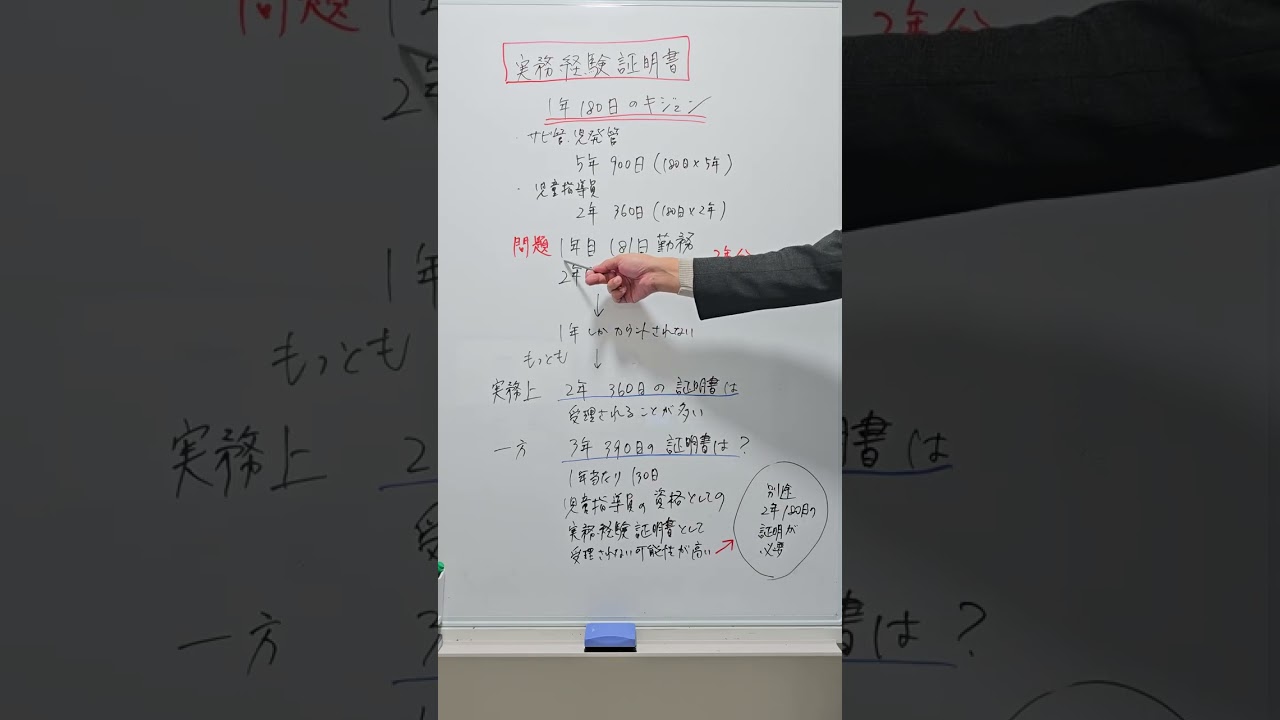 実務経験証明書
1年180日のキジュン
・サビ管.児発管
5年 900日(180日×5年)
・児童指導員
2年 360日(180日×2年)
問題 1年目 181日勤務
2年
↓
1年しかカウントされない
もっとも ↓
実務上 2年 360日の証明書は
受理されることが多い
一方 3年390日の証明書は?
1年当たり130日
児童指導員の資格としての
実務経験証明書として
受理されない可能性が高い →
別途
2年180日の
証明が
必要